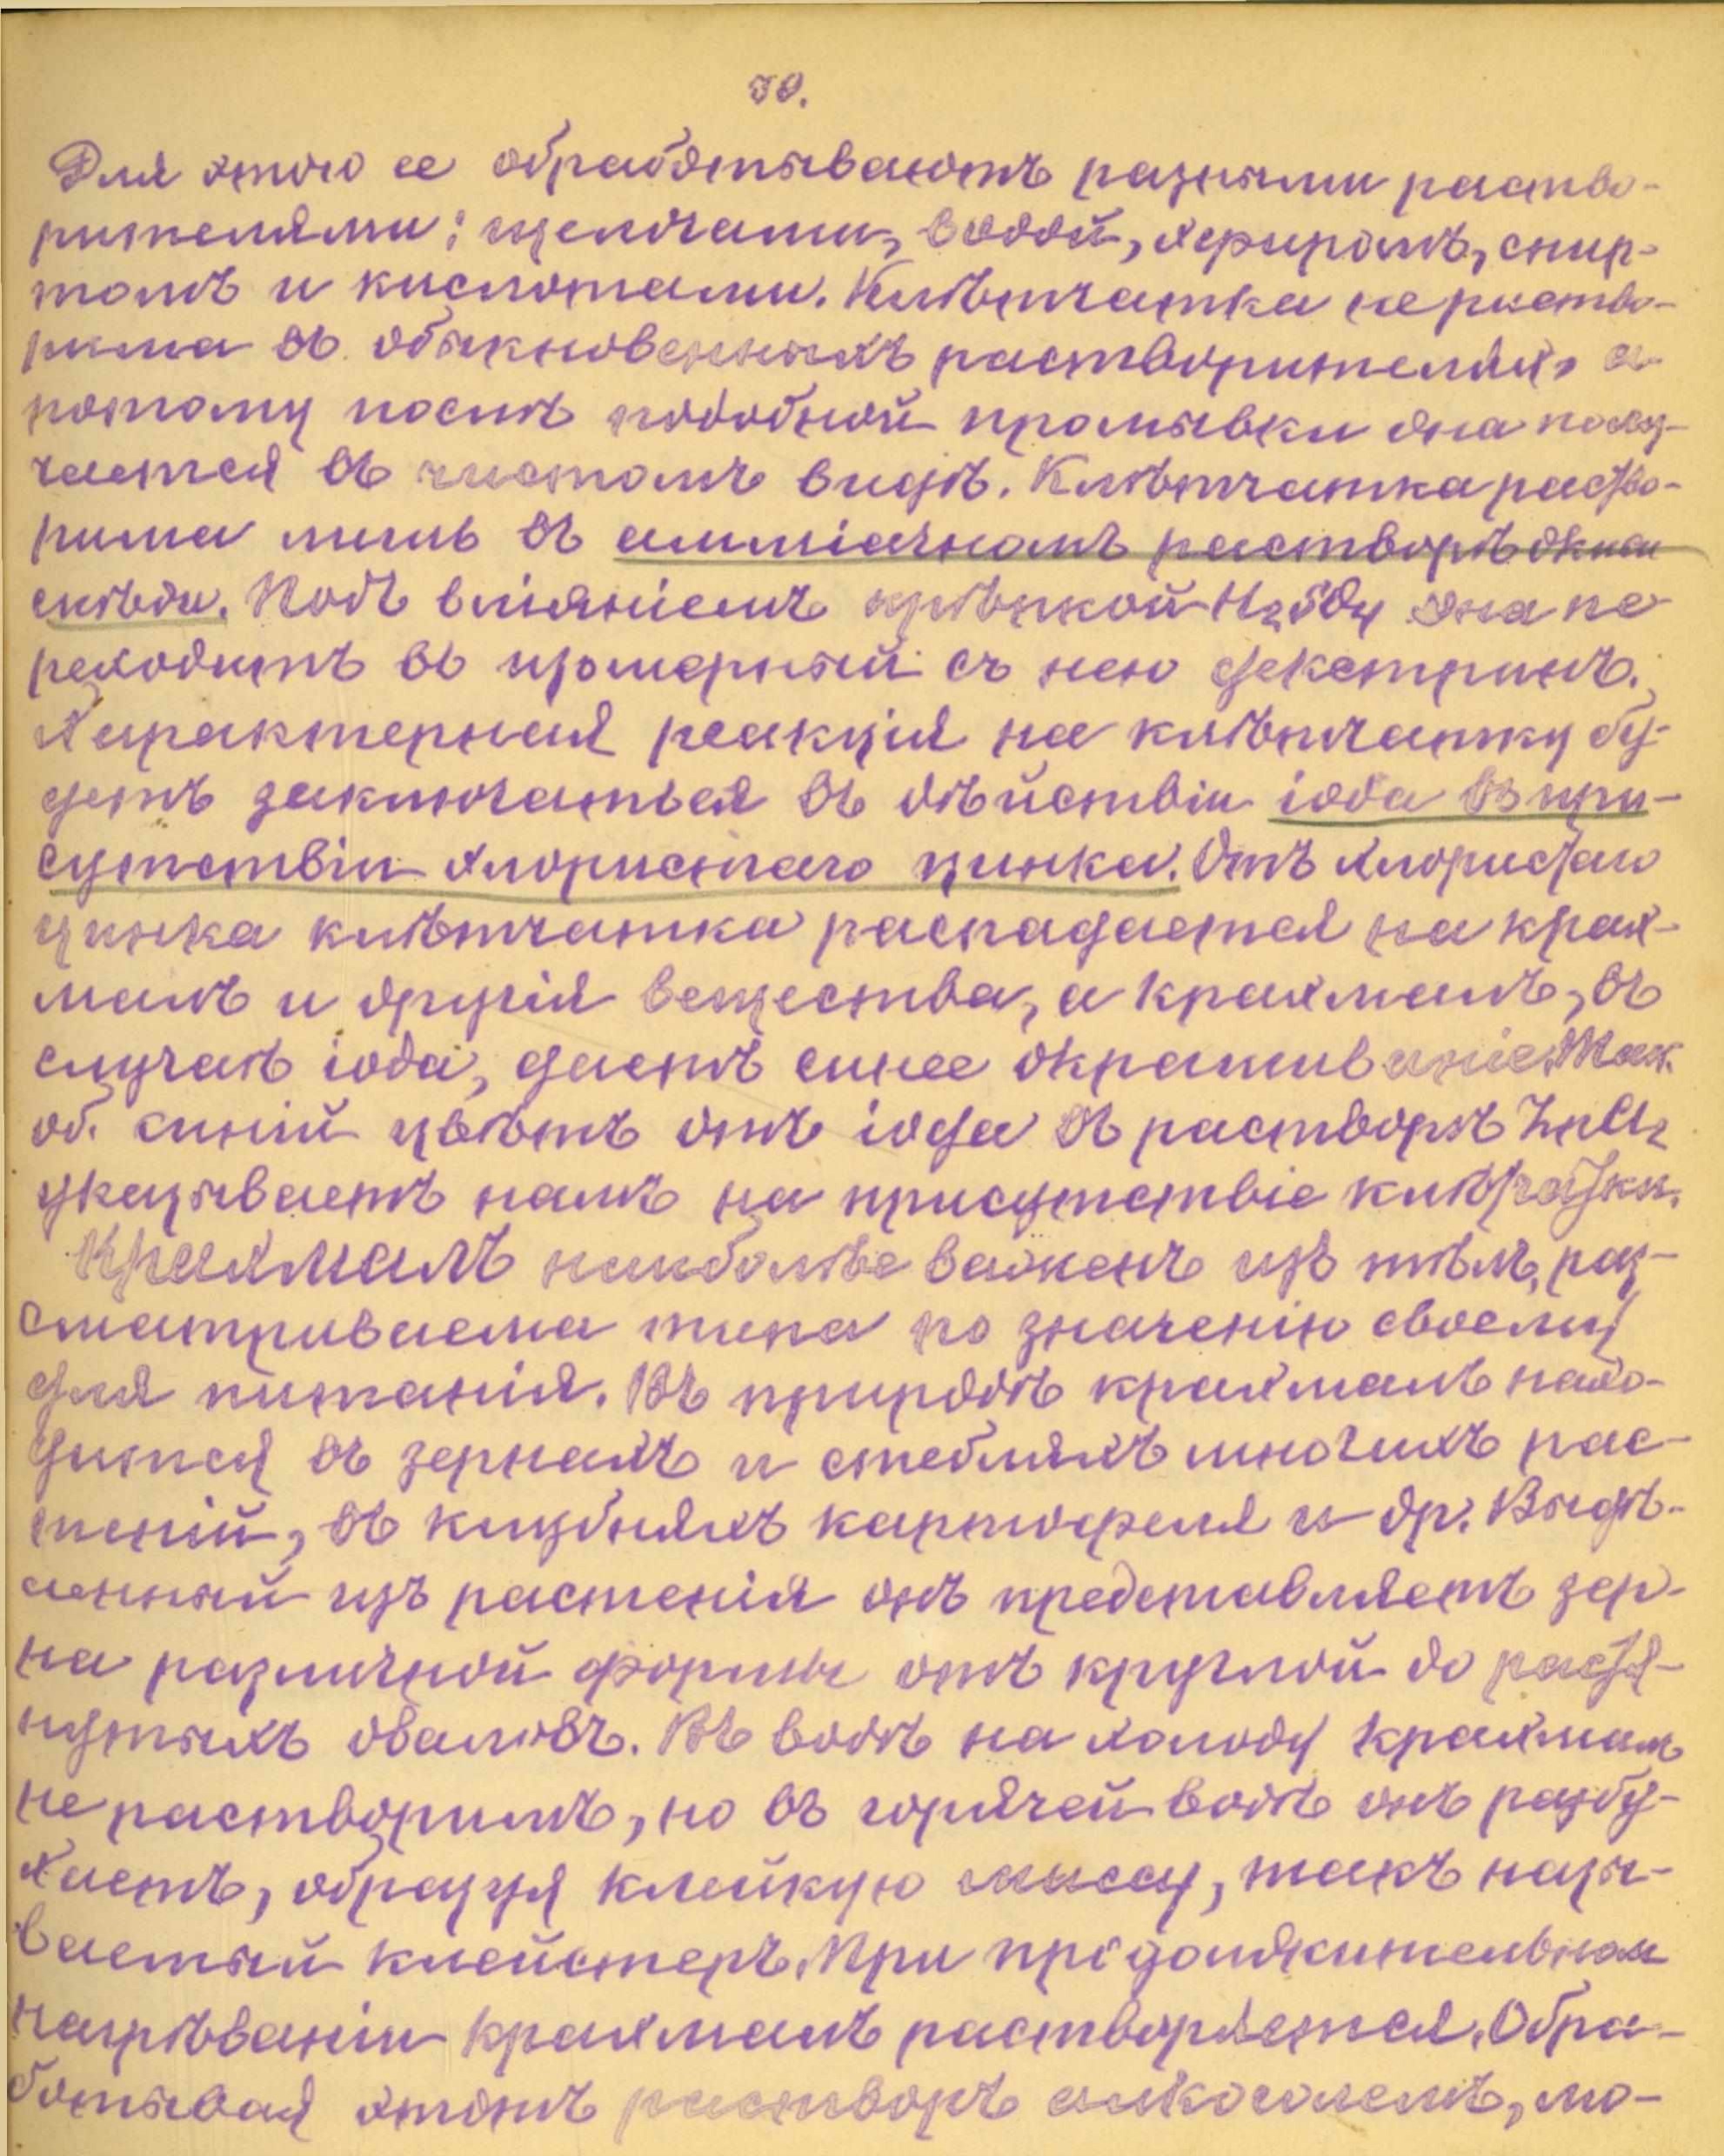 70.
Для этого ее обработываютъ разными раство-
рителями: щелочами, водой, эфиромъ, спир-
томъ и кислотами. Клѣтчатка не раство-
рима въ обыкновенныхъ растворителяхъ, а
потому послѣ подобной промывки она полу-
чается въ чистомъ видѣ. Клѣтчатка раство-
рима лишь въ амміачномъ растворѣ окиси
мѣди. Подъ вліяніемъ крѣпкой H2SO4 она пе
реходитъ въ изомерный съ нею декстринъ.
Характерная реакція на клѣтчатку бу-
детъ заключаться въ дѣйствіи іода въ при-
сутствіи хлористаго цинка. Отъ хлористаго
цинка клѣтчатка распадается на крах-
малъ и другія вещества, а крахмалъ, въ
случаѣ іода, даетъ синее окрашиваніе. Так.
об. синій цвѣтъ отъ іода въ растворѣ ZnCl2
указываетъ намъ на присутствіе клѣтчатки.
Крахмалъ наиболѣе важенъ изъ тѣлъ, раз-
сматриваема типа по значенію своему
для питанія. Въ природѣ крахмалъ нахо-
дится въ зернахъ и стебляхъ многихъ рас-
теній, въ клубняхъ картофеля и др. Выдѣ-
ленный изъ растенія онъ представляетъ зер-
на различной формы отъ круглой до растя-
нутыхъ оваловъ. Въ водѣ на холоду крахмалъ
не растворимъ, но въ горячей водѣ онъ разбу-
хаетъ, образуя клейкую массу, такъ назы-
ваемый клейстеръ. При продолжительном
нагрѣваніи крахмалъ растворяется. Обра-
ботывая этотъ растворъ алкоголемъ, мо-